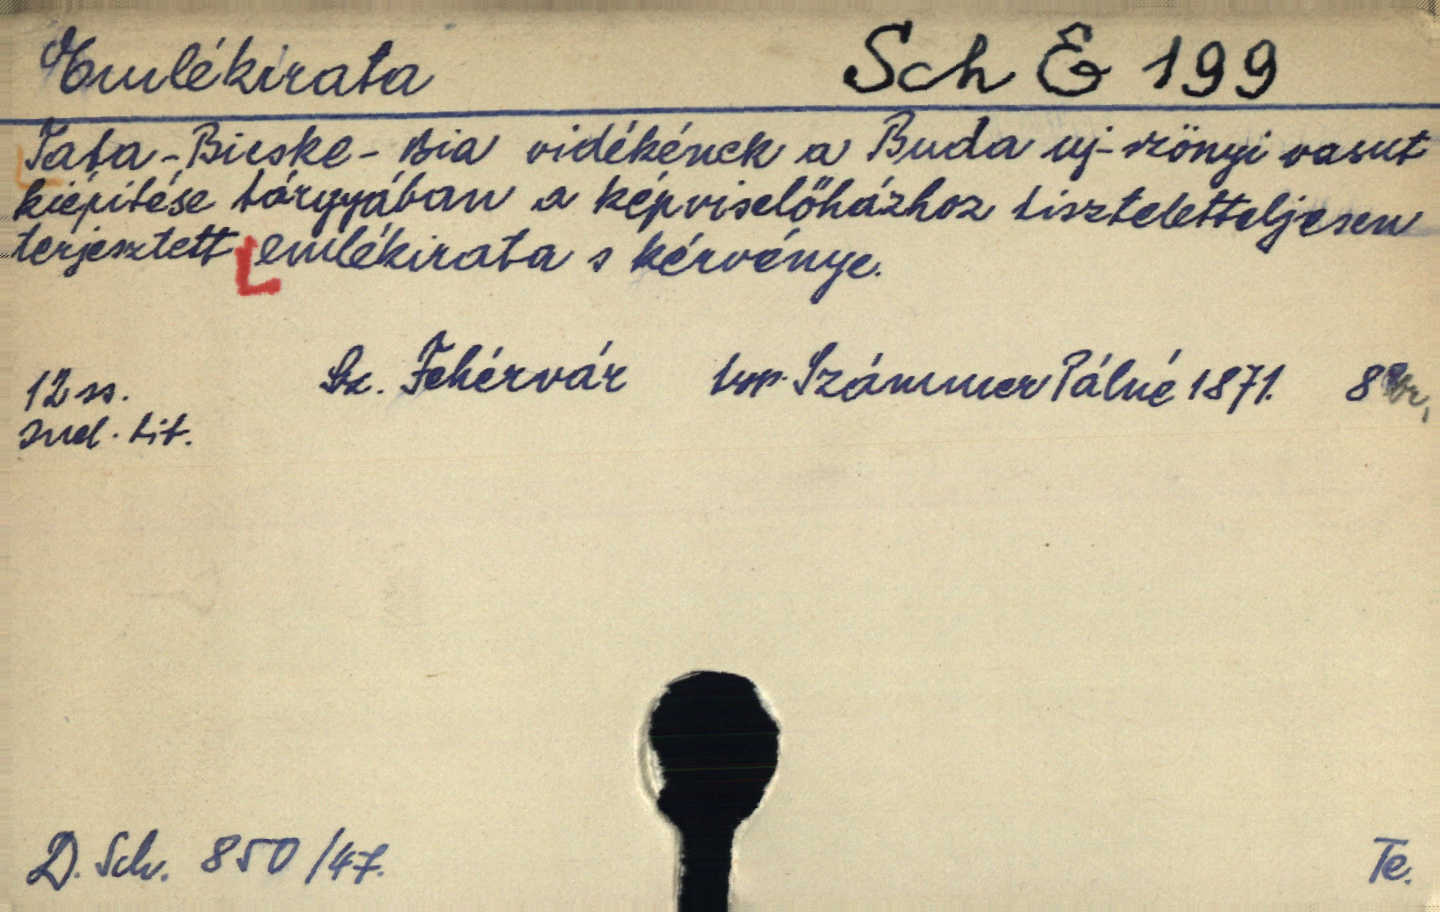 Emlékirata Sch E 199
Tata-Bicske-Bia vidékének a Buda uj-szőnyi vasut
kiépitése tárgyában a képviselőházhoz tisztelettteljesen
terjesztett emlékirata s kérvénye.
12 ss. Sz. Fehérvár typ. Számmer Pálné 1871. 8°
Ind. tit.
D. Sch. 850/47.
Te.